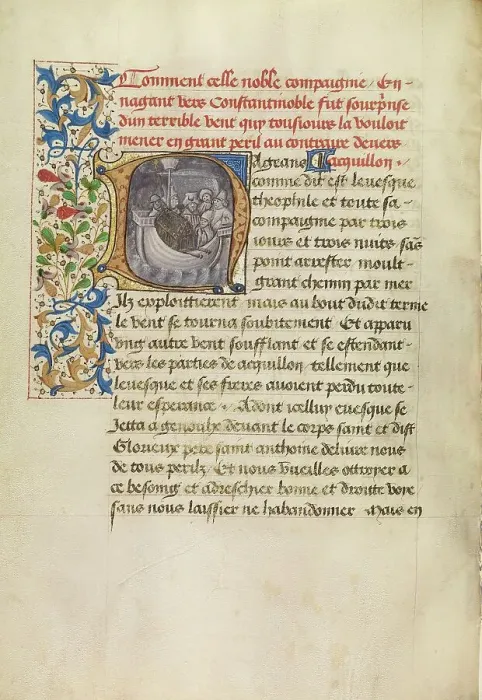 Comment celle noble compaignie / En
nagant vers Constantinoble fut sourprinse
dun terrible vent quy tousiours la vouloit
mener en grant peril au contraire devers
Nageans acquillon .
comme dit est levesque
theophile et toute sa
compaignie par trois
iours et trois nuits sãs
point arrester moult
grant chemin par mer
Ilz exploittierent mais au bout dudit terme
le vent se tourna soubitement Et apparu
ung autre vent soufflant et se estendant
vers les parties de acquillon tellement que
levesque et ses freres avoient perdu toute
leur esperance . Adont icelluy evesque se
Jetta a genoulx devant le corps saint et dist
Glorieux pere saint anthoine delivre nous
de tous perilz Et nous vueilles ottroyer a
ce besoing et adreschier bonne et droitte voye
sans nous laissier ne habandonner Mais en